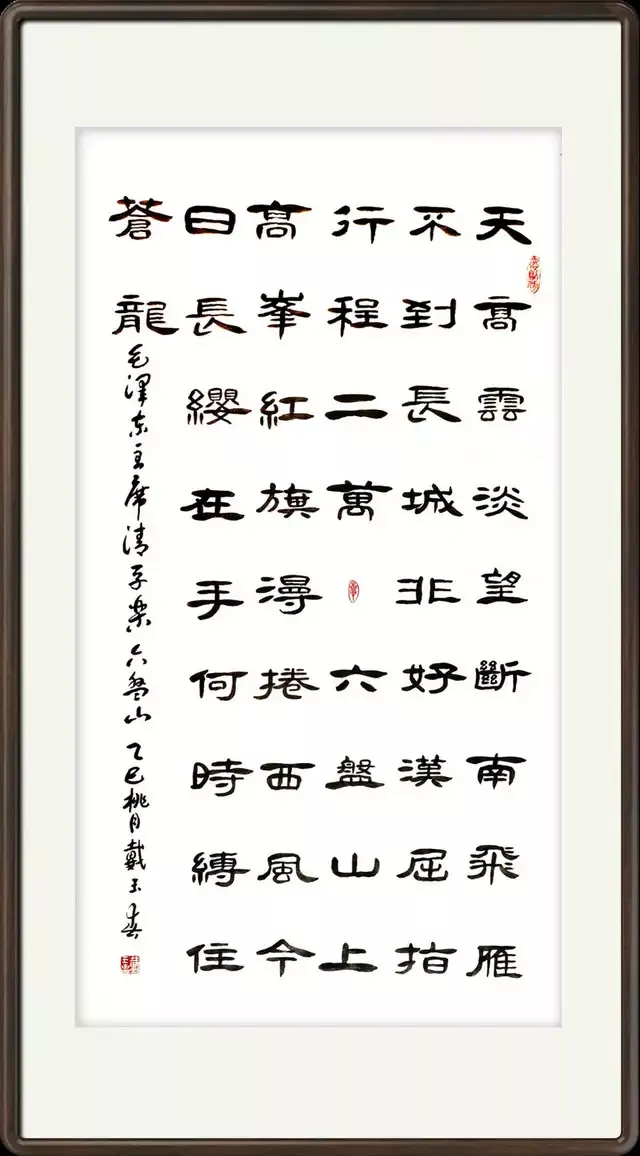 天高雲淡望斷南飛雁
不到長城非好漢屈指
行程二萬六盤山上
高峯紅旗漫捲西風今
日長纓在手何時縛住
蒼龍
毛澤东主席清平樂六盤山乙巳桃月戴玉春